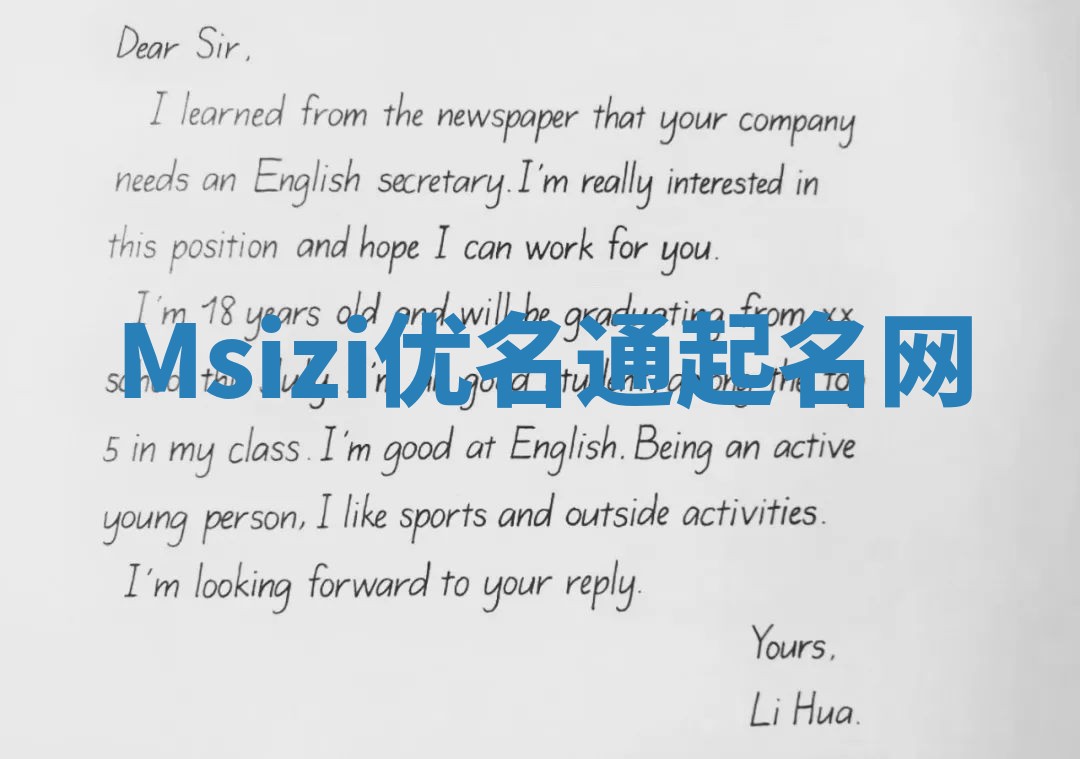 Dear Sir,
I learned from the newspaper that your company
needs an English secretary. I'm really interested in
this position and hope I can work for you.
I'm 18 years old and will be graduating from xx
Msizi优名通起名网
school this July. I'm a good student, among the top
5 in my class. I'm good at English. Being an active
young person, I like sports and outside activities.
I'm looking forward to your reply.
Yours,
Li Hua.